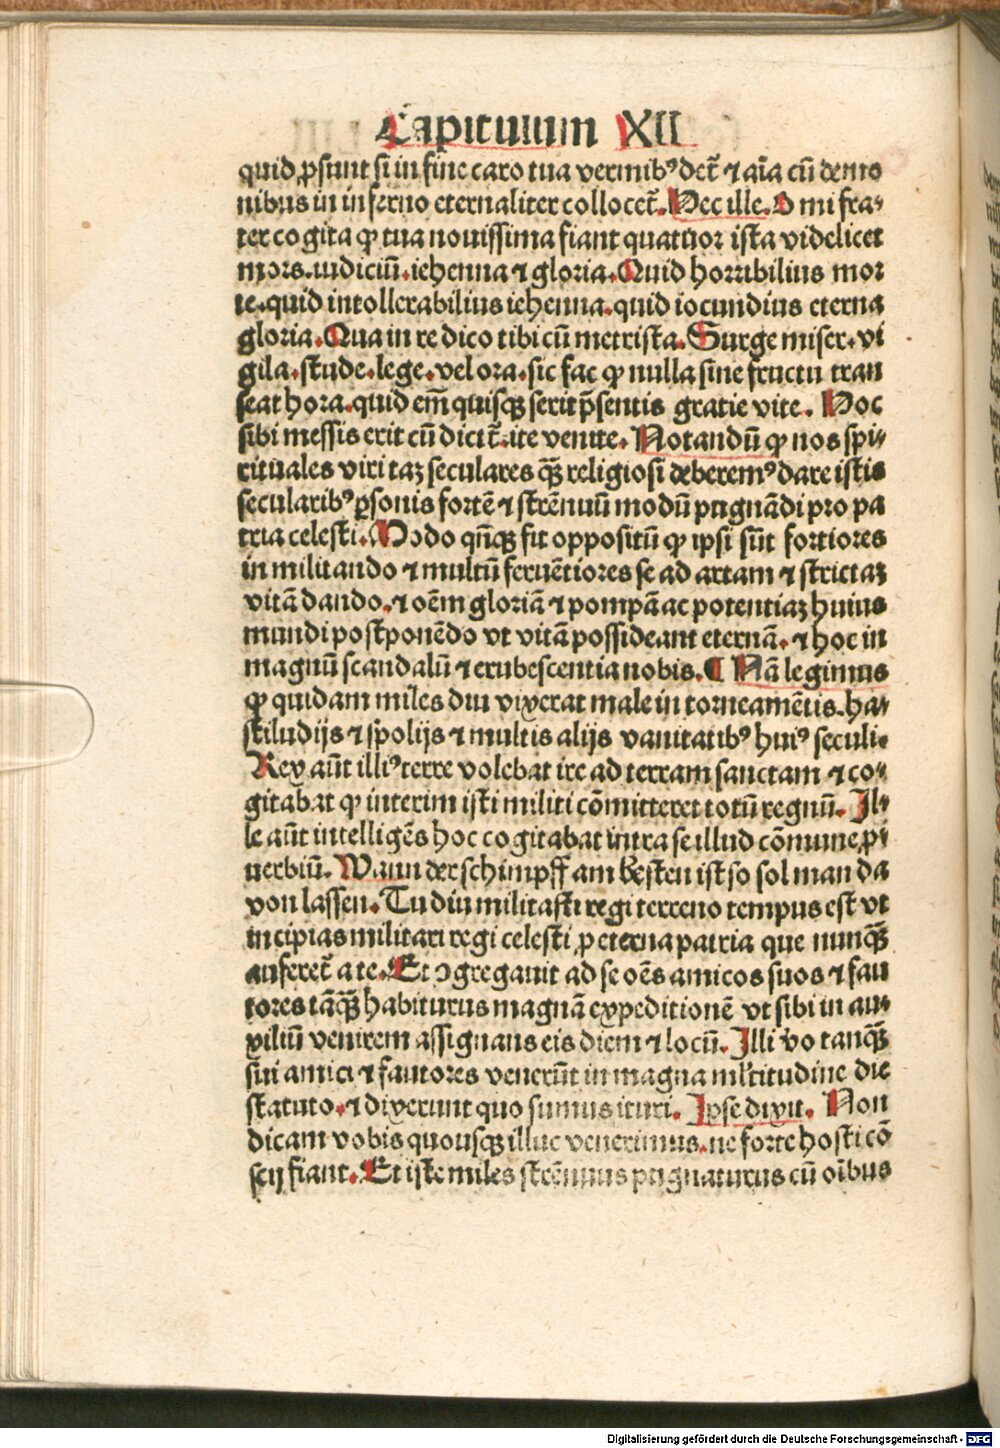 Capitulum XII
quid ꝓsunt si in fine caro tua vermibꝰ det̃ ⁊ aĩa cũ demo
nibus in inferno eternaliter collocet̃. Hec ille. O mi fra⸗
ter cogita ꝙ tua nouissima fiant quattuor ista videlicet
mors.iudiciũ.iehenna ⁊ gloria. Quid horribilius mor
te.quid intollerabilius iehenna.quid iocundius eterna
gloria. Qua in re dico tibi cũ metrista. Surge miser.vi
gila.stude.lege.vel ora.sic fac ꝙ nulla sine fructu tran
seat hora.quid em̃ quisqꝫ serit p̃sentis gratie vite. Hoc
sibi messis erit cũ dicit̃.ite venite. Notandũ ꝙ nos spi⸗
rituales viri taꝫ seculares qꝫ̃ religiosi deberemꝰ dare istis
secularibꝰ ꝑsonis fortẽ ⁊ strẽnuũ modũ pugnãdi pro pa
tria celesti. Modo qñqꝫ fit oppositũ ꝙ ipsi sũt fortiores
in militando ⁊ multũ feruẽtiores se ad artam ⁊ strictaꝫ
vitã dando.⁊ oẽm gloriã ⁊ pompã ac potentiaꝫ huius
mundi postponẽdo vt vitã possideant eternã. ⁊ hoc in
magnũ scandalũ ⁊ erubescentia nobis. ¶ Nã legimus
ꝙ quidam miles diu vixerat male in torneamẽtis.ha⸗
stiludijs ⁊ spolijs ⁊ multis alijs vanitatibꝰ huiꝰ seculi.
Rex aũt illiꝰ terre volebat ire ad terram sanctam ⁊ co⸗
gitabat ꝙ interim isti militi cõmitteret totũ regnũ. Il⸗
le aũt intelligẽs hoc cogitabat intra se illud cõmune ꝓ
uerbiũ. Wann der schimpff am besten ist so sol man da
von lassen. Tu diu militasti regi terreno tempus est vt
incipias militari regi celesti ꝓ eterna patria que nunqꝫ̃
auferet̃ a te. Et ↄgregauit ad se oẽs amicos suos ⁊ fau
tores tãqꝫ̃ habiturus magnã expeditionẽ vt sibi in au⸗
xiliũ venirem assignans eis diem ⁊ locũ. Illi v̾o tanqꝫ̃
sui amici ⁊ fautores venerũt in magna ml̃titudine die
statuto.⁊ dixerunt quo sumus ituri. Ipse dixit. Non
dicam vobis quousqꝫ illuc venerimus.ne forte hosti cõ
scij fiant. Et iste miles strẽnuus pugnaturus cũ oĩbus
Digitalisierung gefördert durch die Deutsche Forschungsgemeinschaft - DFG